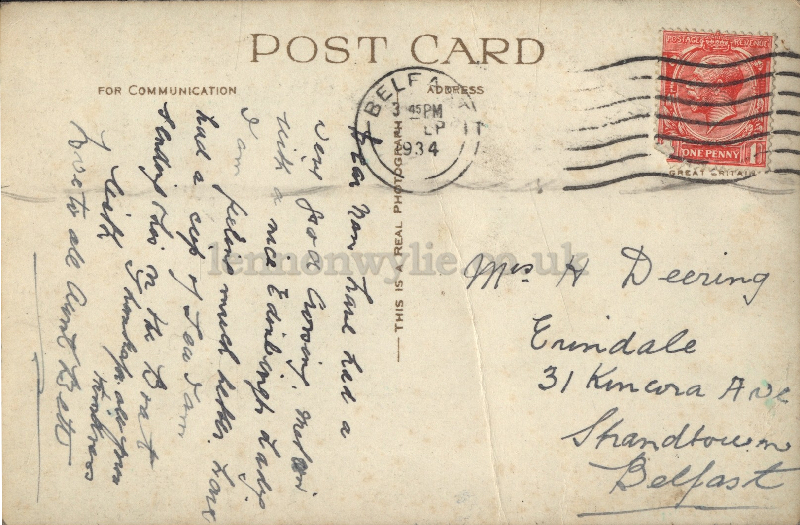 POST CARD
FOR COMMUNICATION
ADDRESS
THIS IS A REAL PHOTOGRAPH
BELFAST
3 45 PM
EP 11
1934
POSTAGE REVENUE
ONE PENNY
GREAT BRITAIN
Dear Nan have had a
very good crossing, met in
with a nice Edinburgh Lady
I am feeling much better have
had a cup of Tea & am
sending this on the Boat
with Thanks for all your
kindness
Love to all Aunt Bella
Mrs H Deering
Erindale
31 Kincora Ave
Strandtown
Belfast
lennonwylie.co.uk